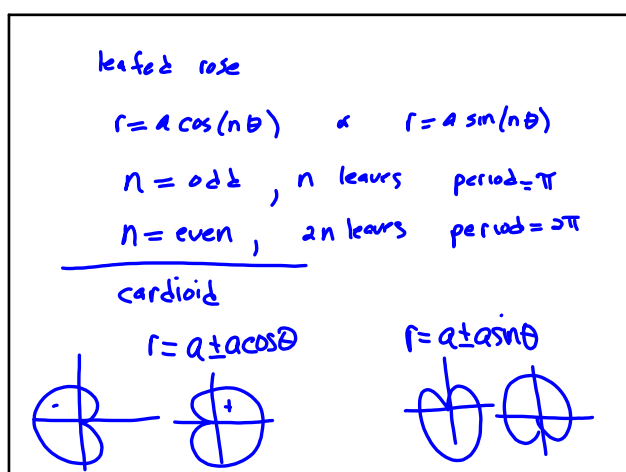 leafed rose
r = a cos(nθ) or r = a sin(nθ)
n = odd, n leaves period = π
n = even, 2n leaves period = 2π
cardioid
r = a ± a cosθ r = a ± a sinθ
- +